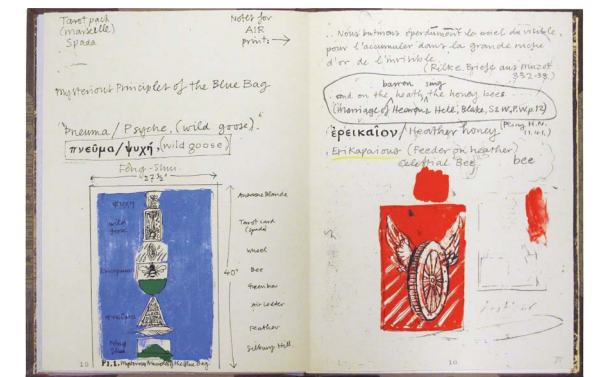 Tarot pack
(Marseille)
Spada
Notes for
AIR
prints
Mysterious Principles of the Blue Bag
Pneuma / Psyche, (wild goose).
πνεῦμα/ψυχή, (wild goose)
Fêng-Shui
27½"
wild
goose
Fêng
Shui
40"
Tarot card
(spada)
wheel
Bee
Air Letter
Feather
Silbury Hill.
10
Pl.1. Mysterious of the Blue Bag
.. Nous butinons éperdument le miel du visible,
pour l'accumuler dans la grande ruche
d'or de l'invisible.
(Rilke. Briefe aus Muzot
barren sing
and on the heath the honey bees
(Marriage of Heaven & Hell, Blake,
ἐρεικαῖον/Heather honey
(Pliny H.N.
11.41)
Erikapaious (Feeder on heather)
Celestial Bee
bee
10